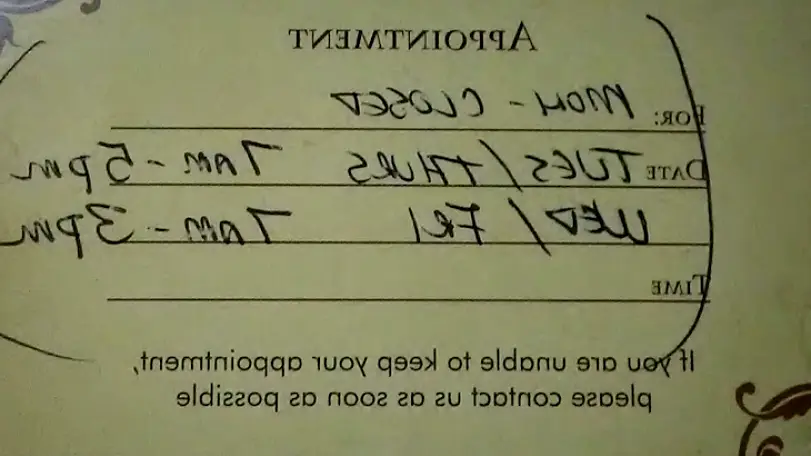 APPOINTMENT
FOR: MON - CLOSED
DATE TUES/THURS 7am - 5pm
WED/FRI 7am - 3pm
TIME
If you are unable to keep your appointment,
please contact us as soon as possible